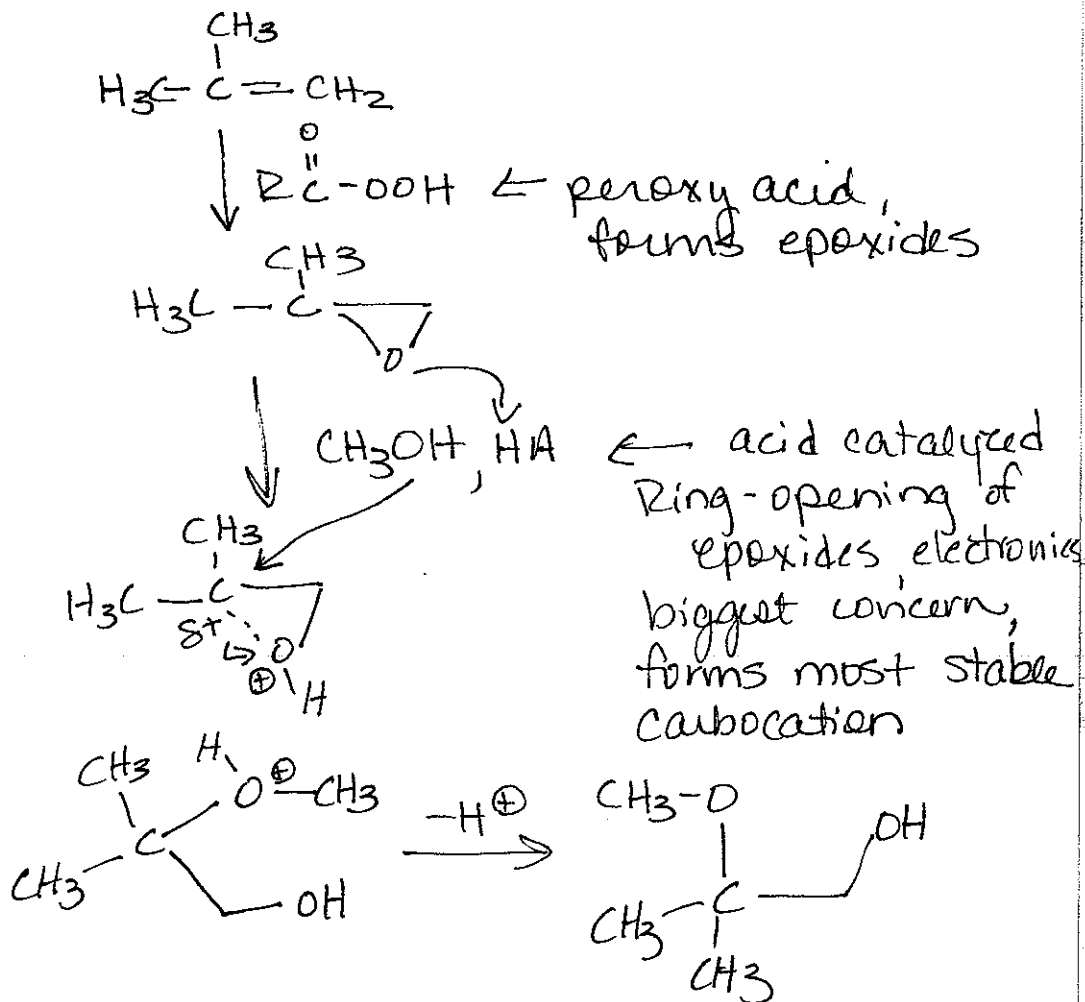 CH3
H3C-C=CH2
O
RC-OOH ← peroxy acid,
forms epoxides
CH3
H3C-C
O
CH3OH, HA ← acid catalyzed
Ring-opening of
epoxides, electronics
biggest concern,
forms most stable
carbocation
CH3
H3C-C
δ+ O
⊕ H
CH3 H O⊕-CH3
C
CH3 OH
-H⊕
CH3-O OH
C
CH3
CH3